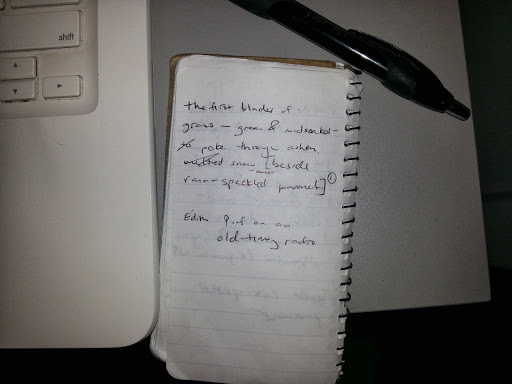 shift
the first blades of
grass — green &
to poke through when
melted snow [beside
rain-speckled pavement] 1
Edith Piaf on an
old-timey radio